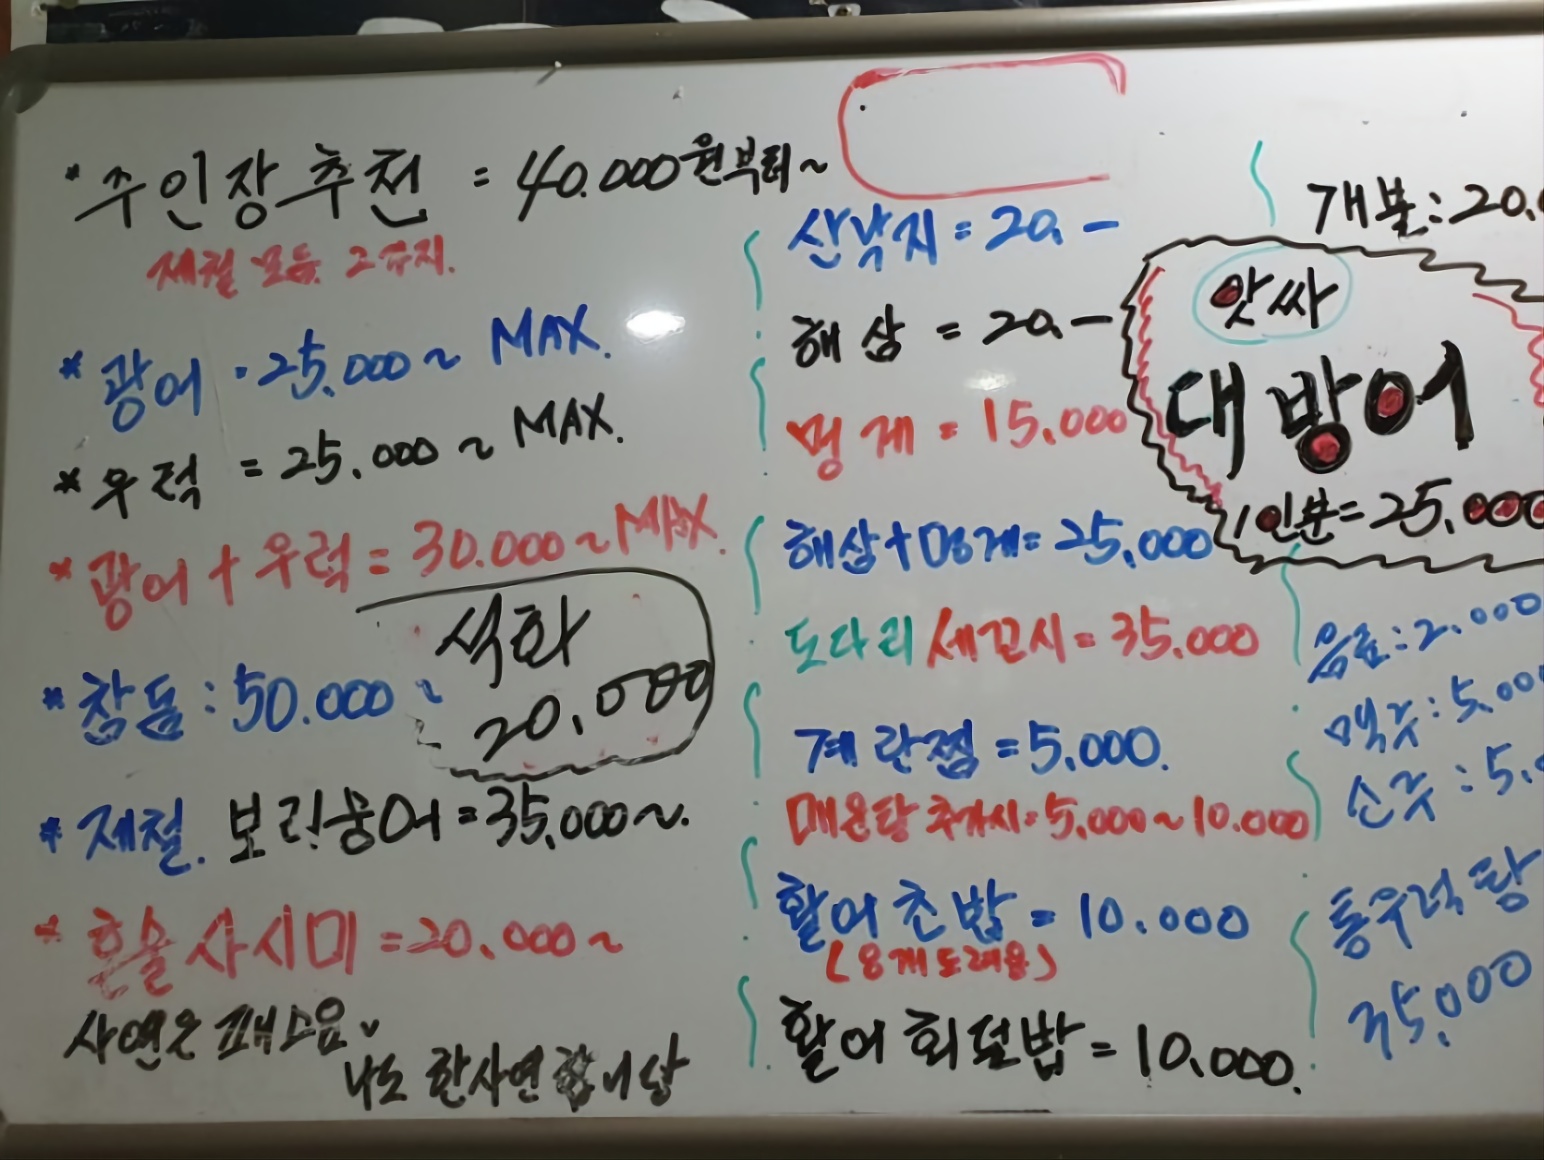 * 주인장추천 = 40.000원부터~
제철 모듬. 2가지.
* 광어 · 25.000 ~ MAX.
* 우럭 = 25.000 ~ MAX.
* 광어 + 우럭 = 30.000 ~ MAX.
석화
20,000
* 참돔 : 50.000 ~
* 제철. 보리숭어 = 35,000 ~.
* 혼술 사시미 = 20.000 ~
사연은 패소음
나도 한사연 합니상
산낙지 = 20. —
해삼 = 20. —
멍게 = 15.000
해삼+멍게 = 25,000
도다리 세꼬시 = 35.000
계란찜 = 5,000.
매운탕 추가시 = 5,000 ~ 10.000
활어초밥 = 10.000
활어 회덮밥 = 10.000.
개불 : 20.
앗싸
대방어
1인분 = 25,000
음료 : 2.000
맥주 : 5,000
소주 : 5.
통우럭탕
35,000